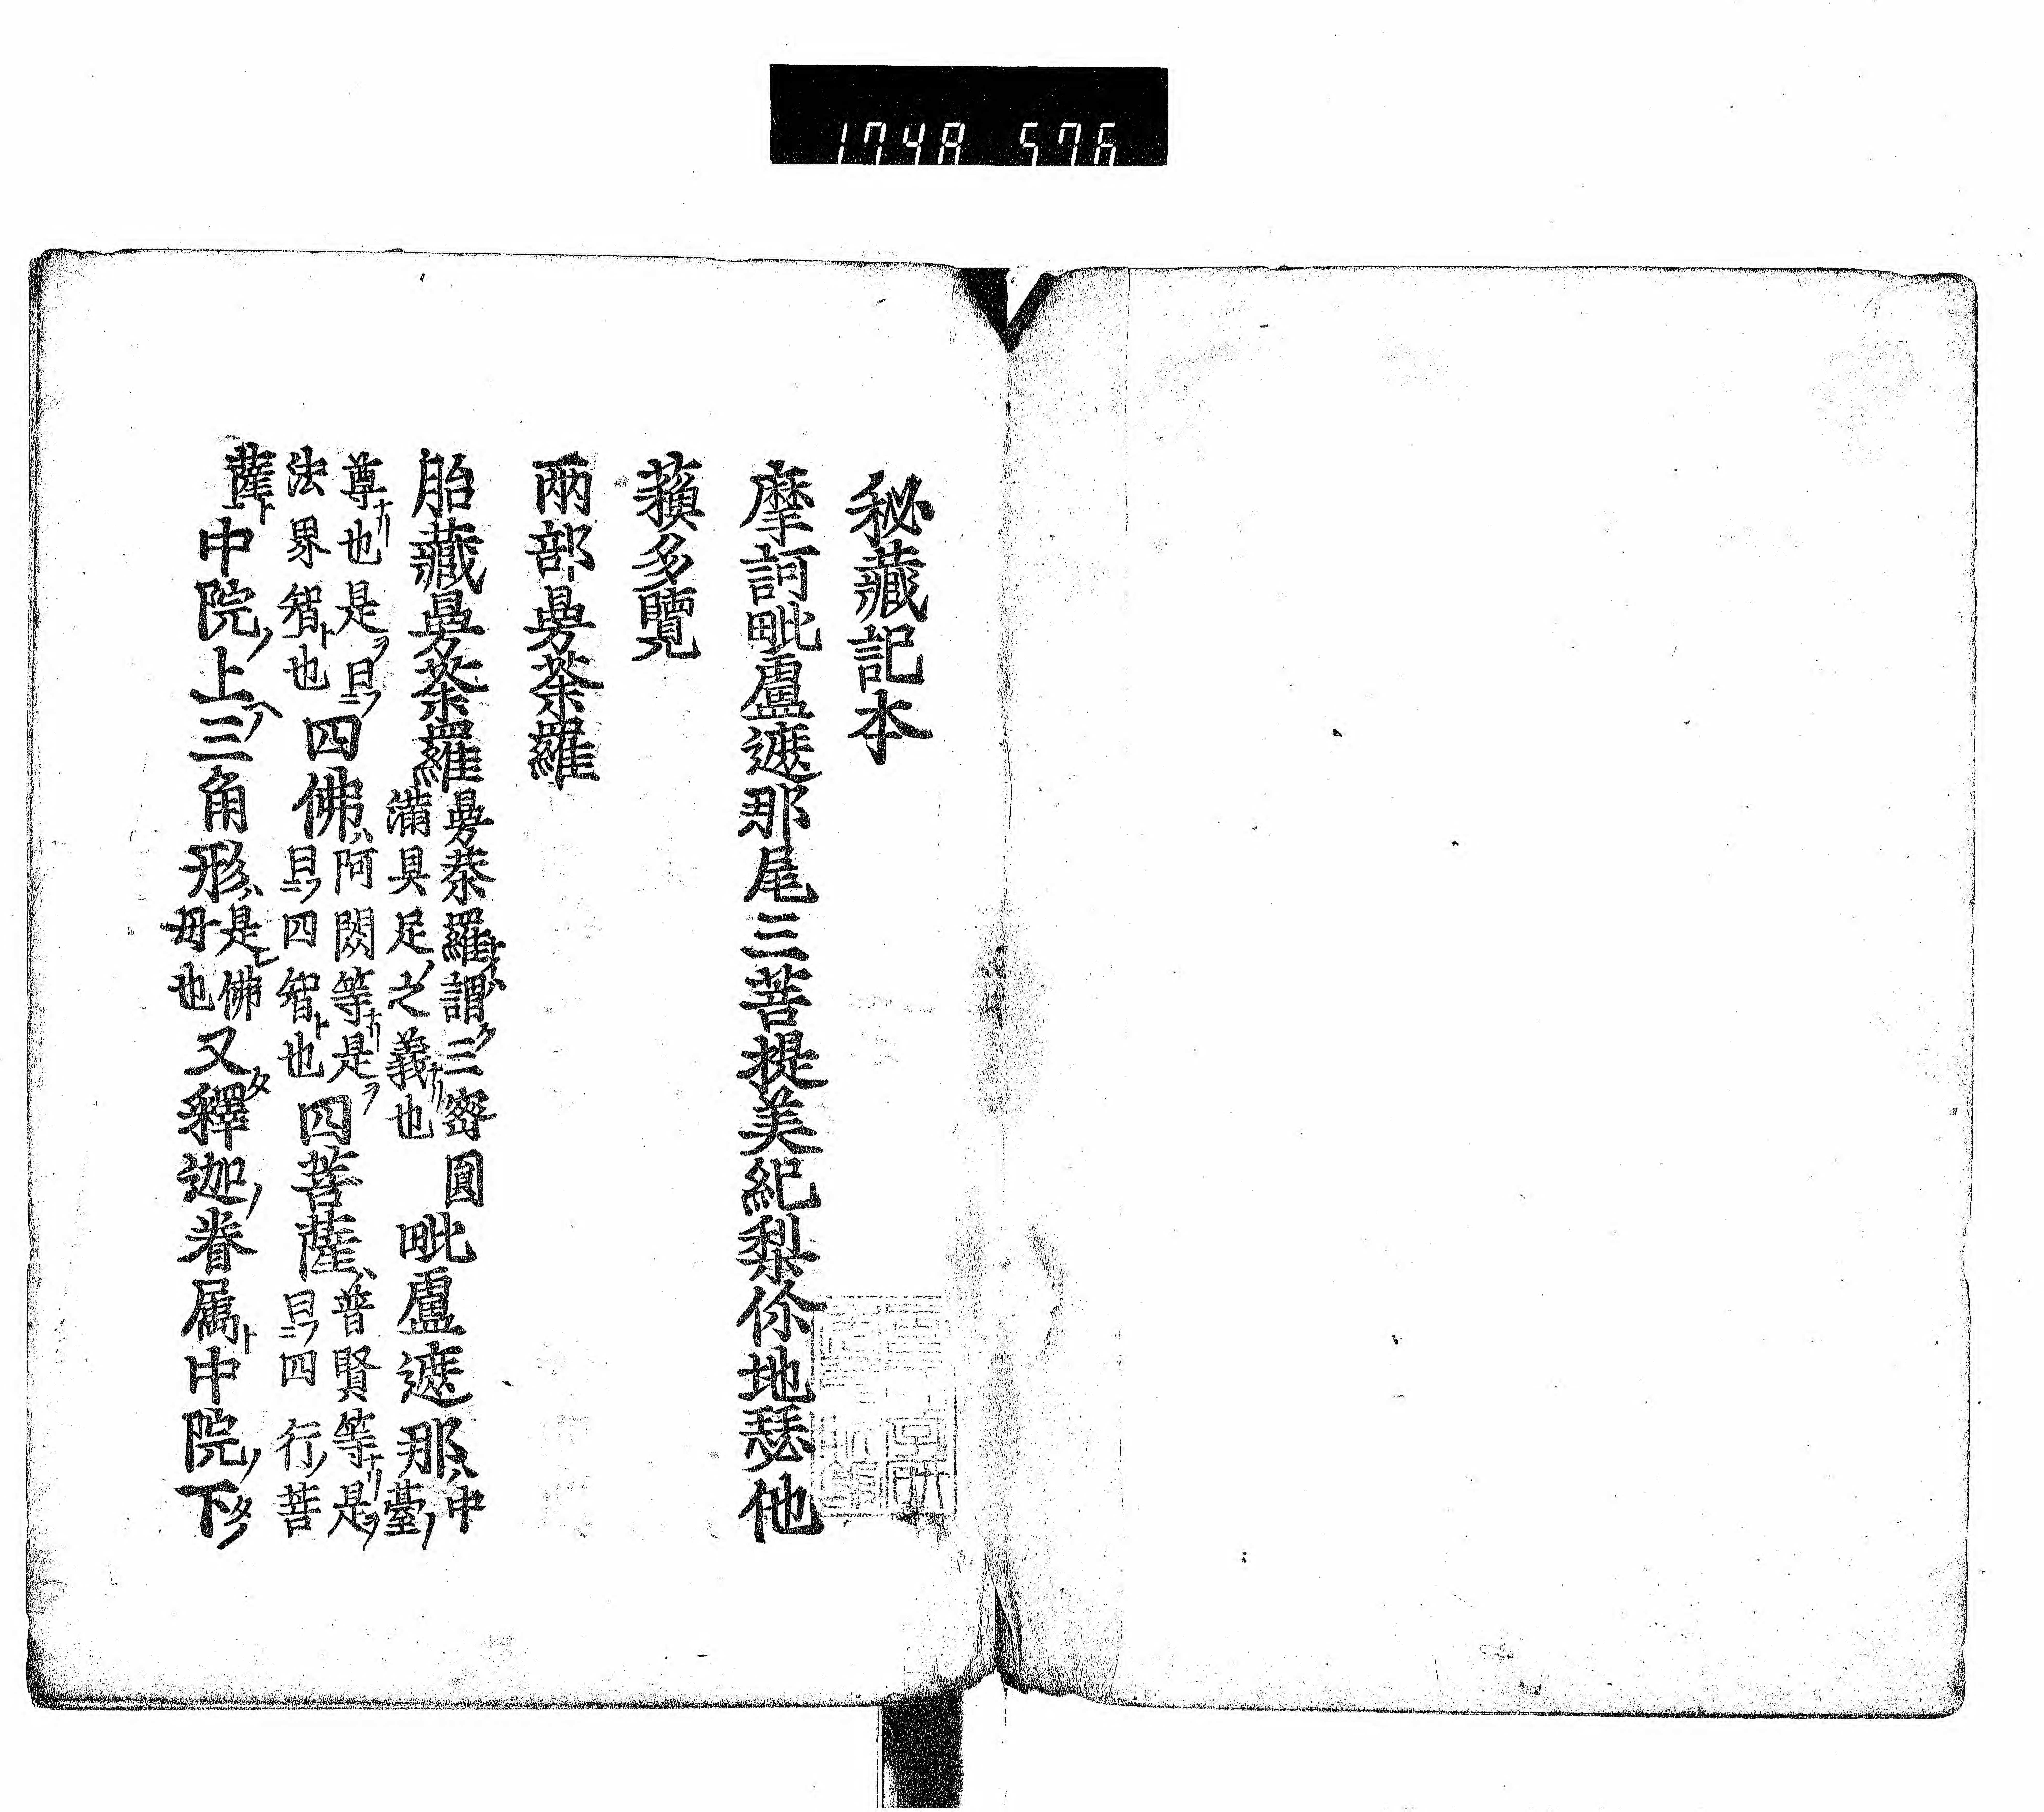 1748 576
秘藏記本
摩訶毗盧遮那尾三菩提美紀梨你地瑟他
蘋多覽
兩部曼荼羅
胎藏曼荼羅 曼荼羅謂三密圓
滿具足之義也 毗盧遮那 中
臺
尊也是曰
法界智也 四佛 阿閦等是
曰四智也 四菩薩 普賢等是
曰四行菩
薩 中院上三角形 是佛
母也 又釋迦眷属中院下